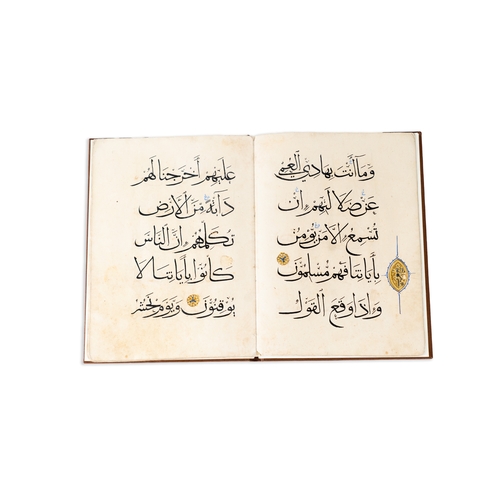 وَمَا أَنْتَ بِهَادِي الْعُمْيِ
عَنْ ضَلَالَتِهِمْ إِنْ
تُسْمِعُ إِلَّا مَنْ يُؤْمِنُ
بِآيَاتِنَا فَهُمْ مُسْلِمُونَ
وَإِذَا وَقَعَ الْقَوْلُ
عَلَيْهِمْ أَخْرَجْنَا لَهُمْ
دَابَّةً مِنَ الْأَرْضِ
تُكَلِّمُهُمْ إِنَّ النَّاسَ
كَانُوا بِآيَاتِنَا لَا
يُوقِنُونَ وَيَوْمَ نَحْشُرُ